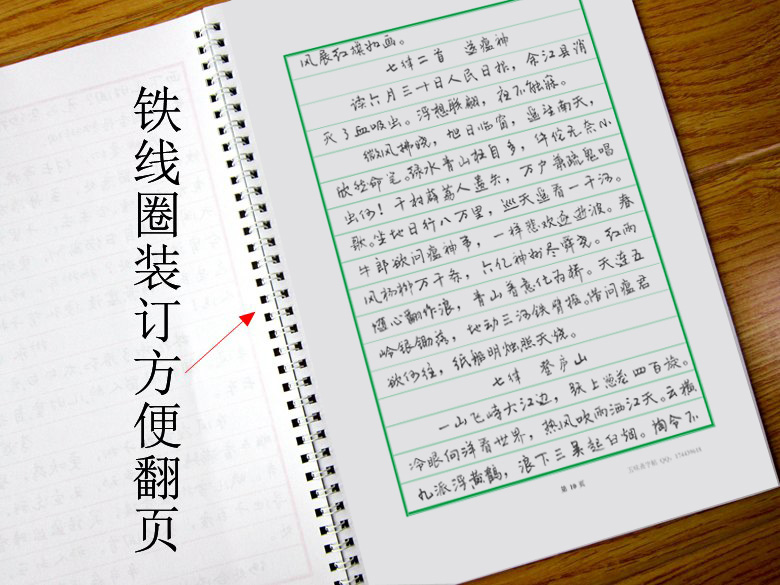 铁线圈装订方便翻页
风展红旗如画。
七律二首 送瘟神
读六月三十日人民日报，余江县消
灭了血吸虫。浮想联翩，夜不能寐。
微风拂晓，旭日临窗，遥望南天，
欣然命笔。绿水青山枉自多，华佗无奈小
虫何！千村薜荔人遗矢，万户萧疏鬼唱
歌。坐地日行八万里，巡天遥看一千河。
牛郎欲问瘟神事，一样悲欢逐逝波。春
风杨柳万千条，六亿神州尽舜尧。红雨
随心翻作浪，青山着意化为桥。天连五
岭银锄落，地动三河铁臂摇。借问瘟君
欲何往，纸船明烛照天烧。
七律 登庐山
一山飞峙大江边，跃上葱茏四百旋。
冷眼向洋看世界，热风吹雨洒江天。云横
九派浮黄鹤，浪下三吴起白烟。陶令不
第 10 页